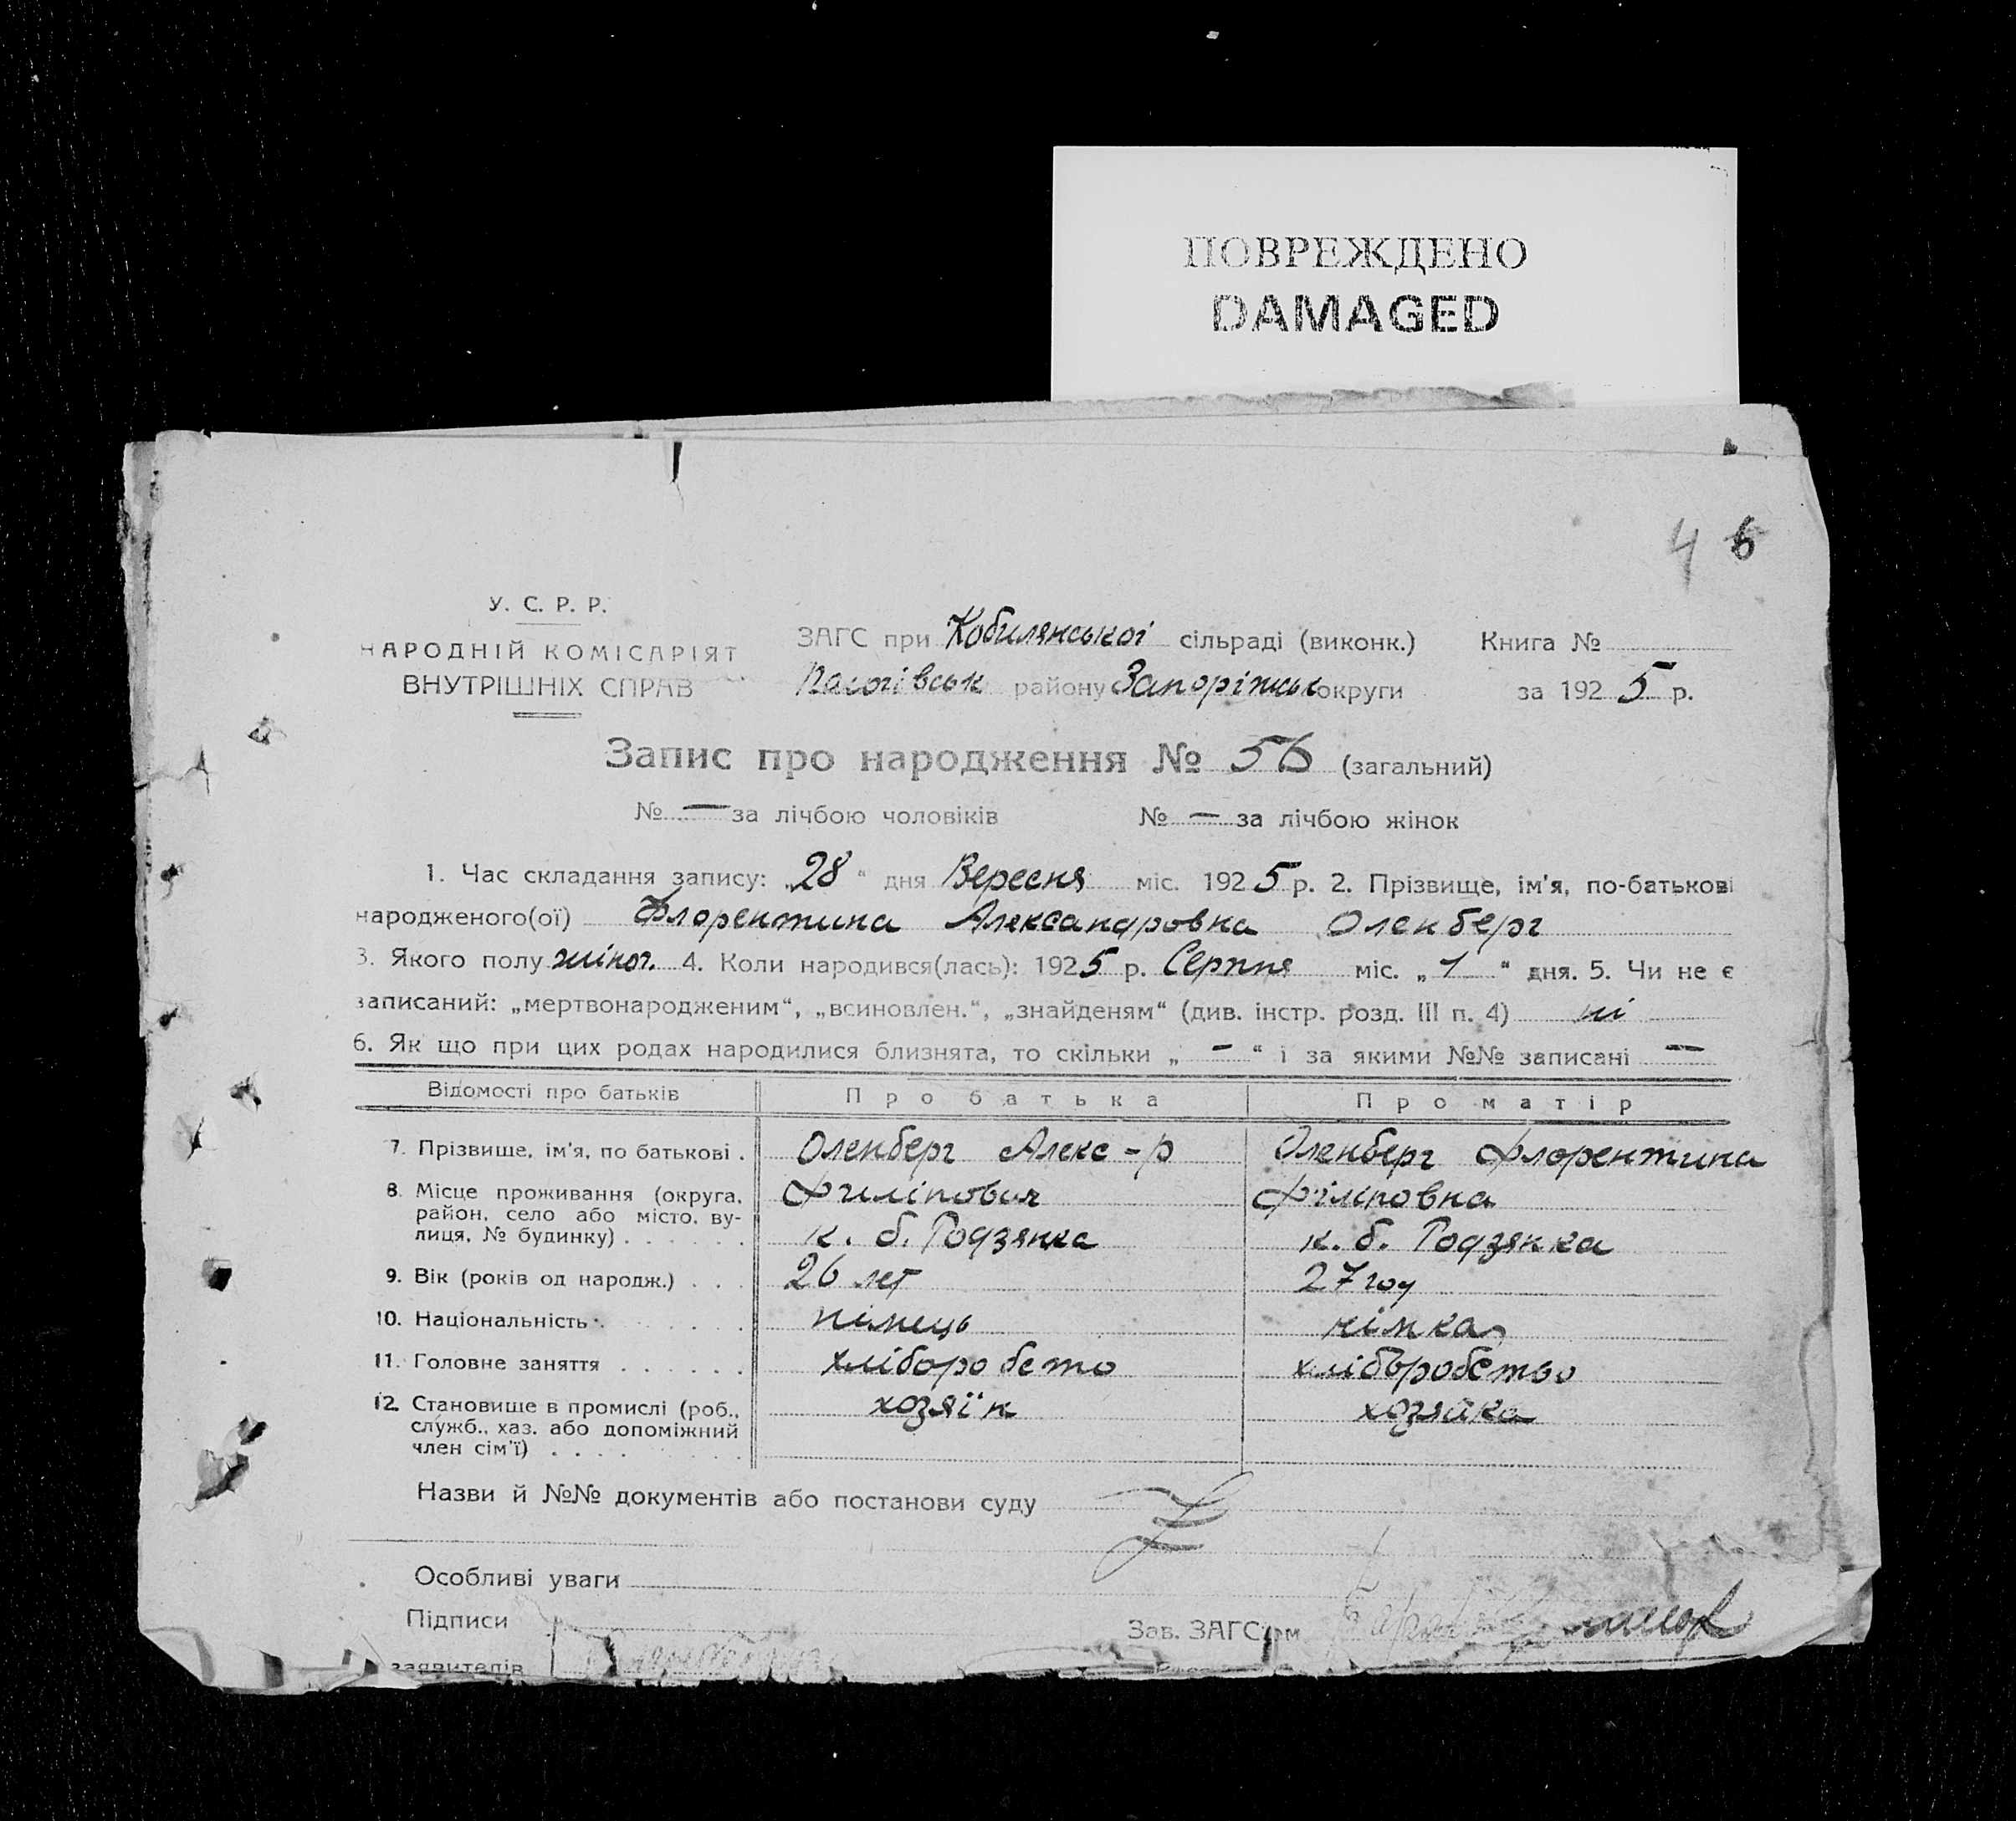 ПОВРЕЖДЕНО
DAMAGED
4 6
У. С. Р. Р.
НАРОДНІЙ КОМІСАРІЯТ
ВНУТРІШНІХ СПРАВ
ЗАГС при Кобилянської сільраді (виконк.) Книга №
району Запоріжськ округи за 1925 р.
Запис про народження № 56 (загальний)
№ — за лічбою чоловіків № — за лічбою жінок
1. Час складання запису: „28“ дня Вересня міс. 1925 р. 2. Прізвище, ім'я, по-батькові
народженого(ої) Флорентина Александровна Оленберг
3. Якого полу жіноч. 4. Коли народився(лась): 1925 р. Серпня міс. „1“ дня. 5. Чи не є
записаний: „мертвонародженим“, „всиновлен.“, „знайденям“ (див. інстр. розд. III п. 4) ні
6. Як що при цих родах народилися близнята, то скільки „ — “ і за якими №№ записані —
Відомості про батьків Про батька Про матір
7. Прізвише, ім'я, по батькові . Оленберг Алекс-р Оленберг Флорентина
8. Місце проживання (округа, Филіпович Філіповна
район, село або місто, ву-
лиця, № будинку) . . . . . . к. б. Родзянка к. б. Родзянка
9. Вік (років од народж.) . . . 26 лет 27 год
10. Національність . . . . . німець німка
11. Головне заняття . . . . . . хліборобство хліборобство
12. Становише в промислі (роб., хозяїн хозяйка
служб., хаз. або допоміжний
член сім'ї) . . . .
Назви й №№ документів або постанови суду
Особливі уваги
Підписи Зав. ЗАГС'ом
заявителів